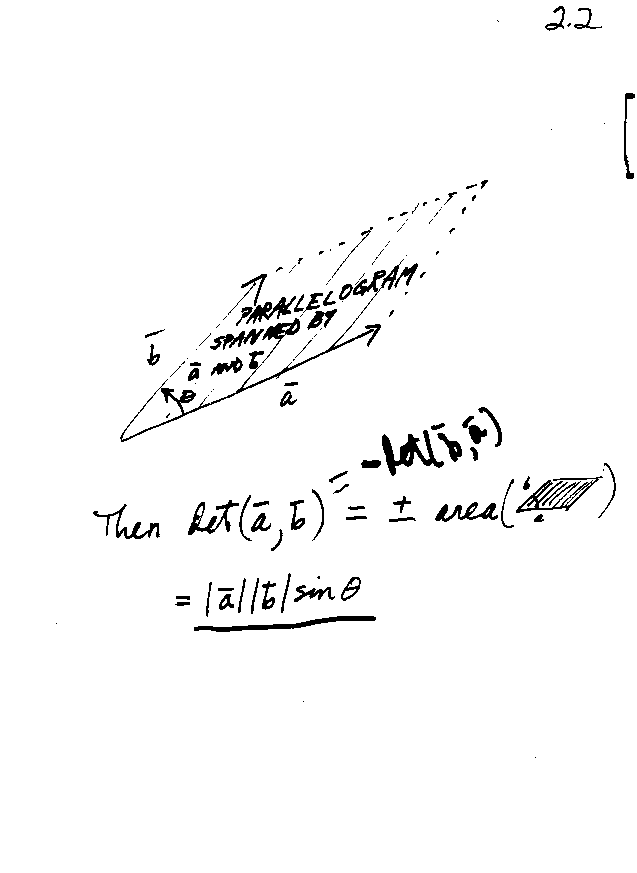 2.2
PARALLELOGRAM
SPANNED BY
b̄
ā AND b̄
θ
ā
= -Det(b̄,ā)
Then Det(ā, b̄) = ± area( b a )
= |ā||b̄| sin θ